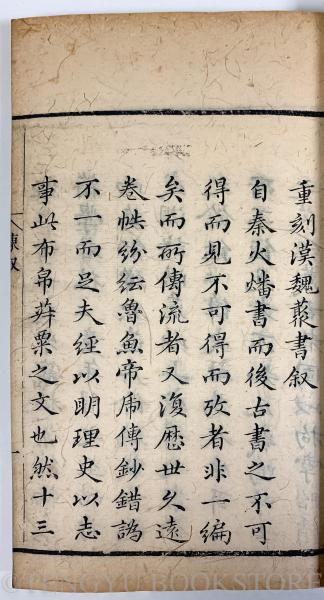 重刻漢魏叢書叙
自秦火燔書而後古書之不可
得而見不可得而攷者非一編
矣而所傳流者又復歷世久遠
卷帙紛紜魯魚帝虎傳鈔錯譌
不一而足夫經以明理史以志
事此布帛菽粟之文也然十三
陳叙
一
PENGYU BOOKSTORE